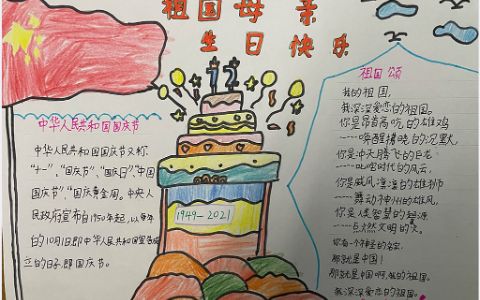 祖国母亲
生日快乐
72
中华人民共和国国庆节
中华人民共和国国庆节又称
"十一"、"国庆节"、"国庆日"、"中国
国庆节"、"国庆黄金周。中央人
民政府宣布自1950年起,以每年
的10月1日即中华人民共和国宣告成
立的日子,即国庆节。
1949-2021
祖国颂
我的祖国,
我深深爱恋的祖国。
你是昂首高吭的雄鸡
-----唤醒拂晓的沉默,
你是冲天腾飞的巨龙
-----叱咤时代的风云,
你是威风凛凛的雄狮
-----舞动神州的雄风,
你是人类智慧的起源
-----点燃文明的
你有一个神圣的名字,
那就是中国!
那就是中国啊,我的祖国。
我深深爱恋的祖国。